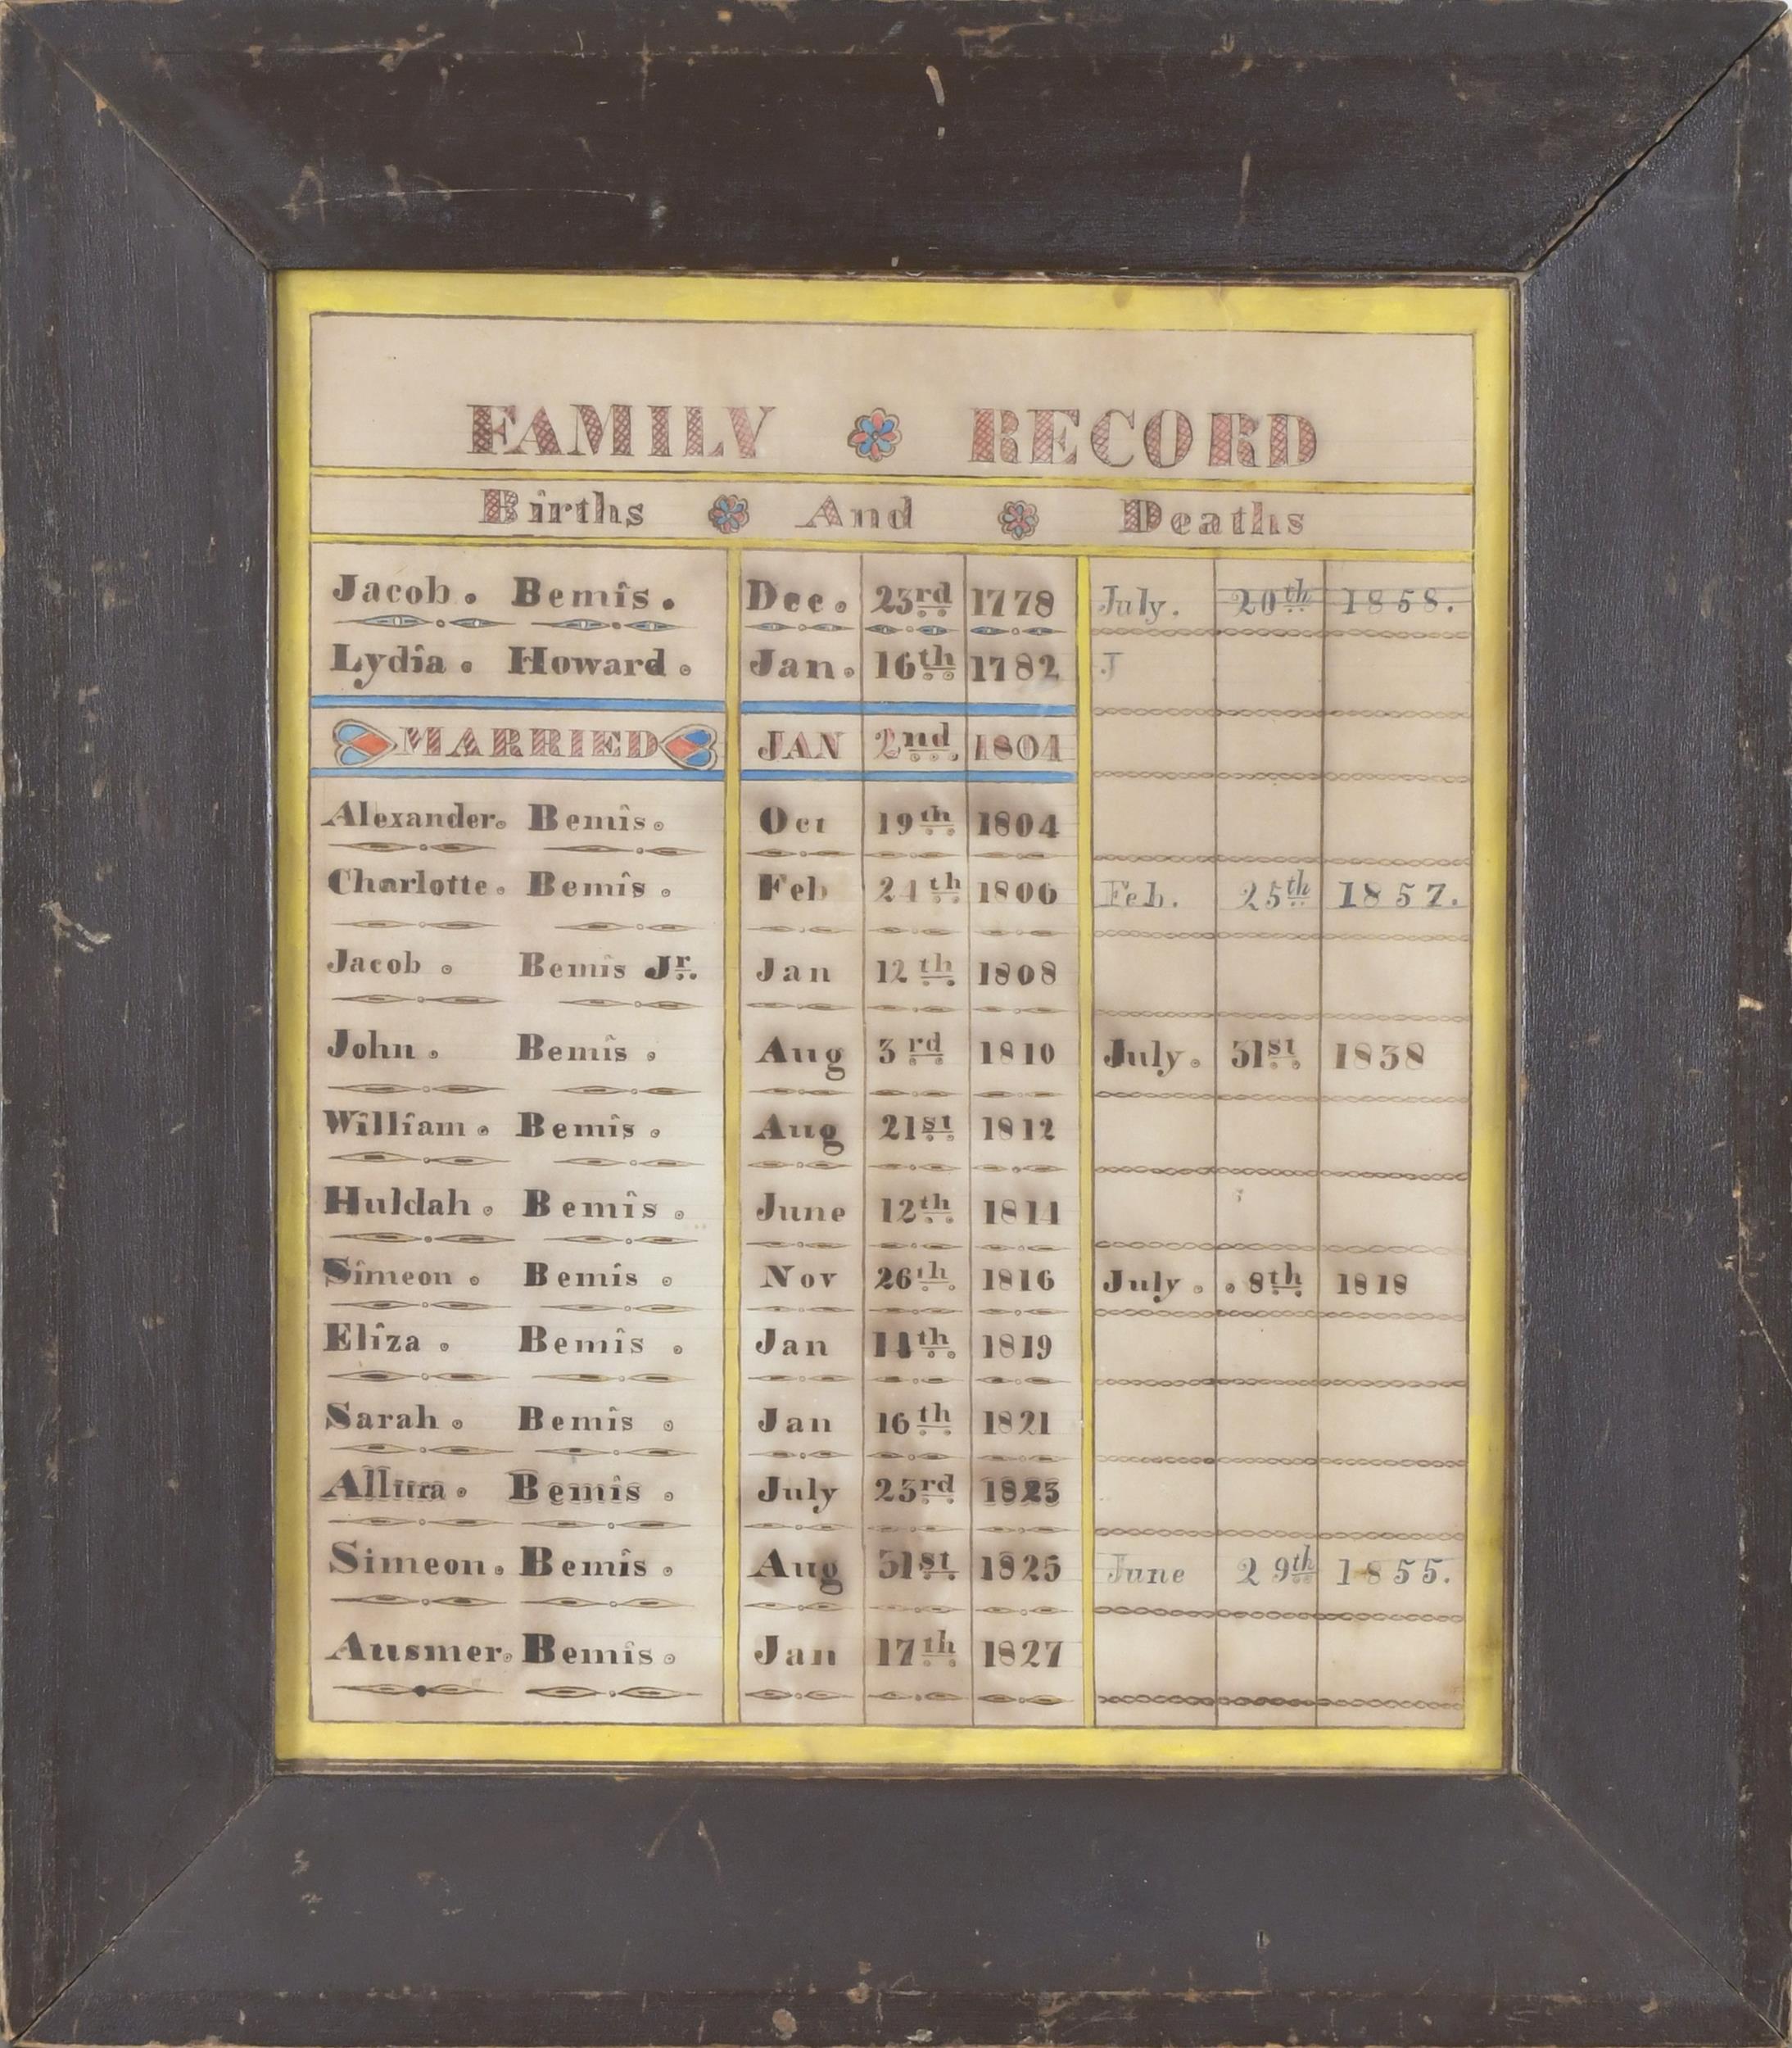 FAMILY RECORD
Births And Deaths
Jacob. Bemis. Dec. 23rd 1778 July. 20th 1858.
Lydia. Howard. Jan. 16th 1782 J
MARRIED JAN 2nd. 1804
Alexander. Bemis. Oct 19th 1804
Charlotte. Bemis. Feb 24th 1806 Feb. 25th 1857.
Jacob. Bemis Jr. Jan 12th 1808
John. Bemis. Aug 3rd 1810 July. 31st. 1838
William. Bemis. Aug 21st 1812
Huldah. Bemis. June 12th 1814
Simeon. Bemis. Nov 26th. 1816 July. 8th 1818
Eliza. Bemis. Jan 14th. 1819
Sarah. Bemis. Jan 16th 1821
Bemis. July 23rd 1823
Simeon. Bemis. Aug 31st 1825 June 29th 1855.
Ausmer. Bemis. Jan 17th 1827